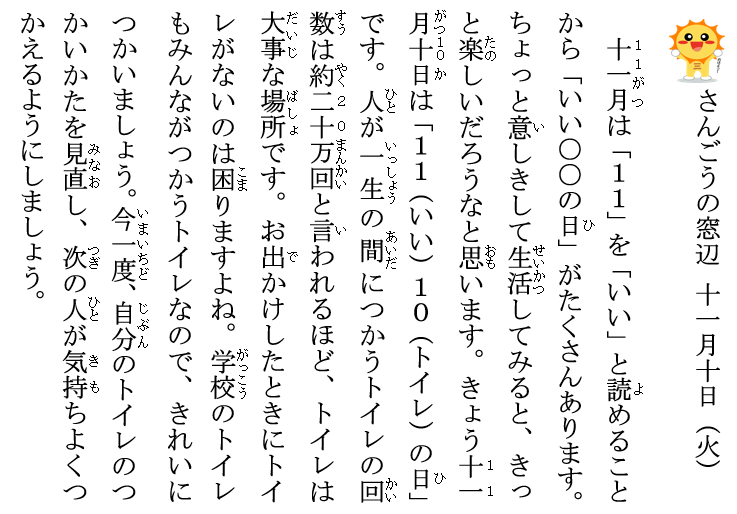 さんごうの窓辺 十一月十日（火）
十一月は「１１」を「いい」と読めること
から「いい〇〇の日」がたくさんあります。
ちょっと意しきして生活してみると、きっ
と楽しいだろうなと思います。きょう十一
月十日は「１１（いい）１０（トイレ）の日」
です。人が一生の間につかうトイレの回
数は約二十万回と言われるほど、トイレは
大事な場所です。お出かけしたときにトイ
レがないのは困りますよね。学校のトイレ
もみんながつかうトイレなので、きれいに
つかいましょう。今一度、自分のトイレのつ
かいかたを見直し、次の人が気持ちよくつ
かえるようにしましょう。